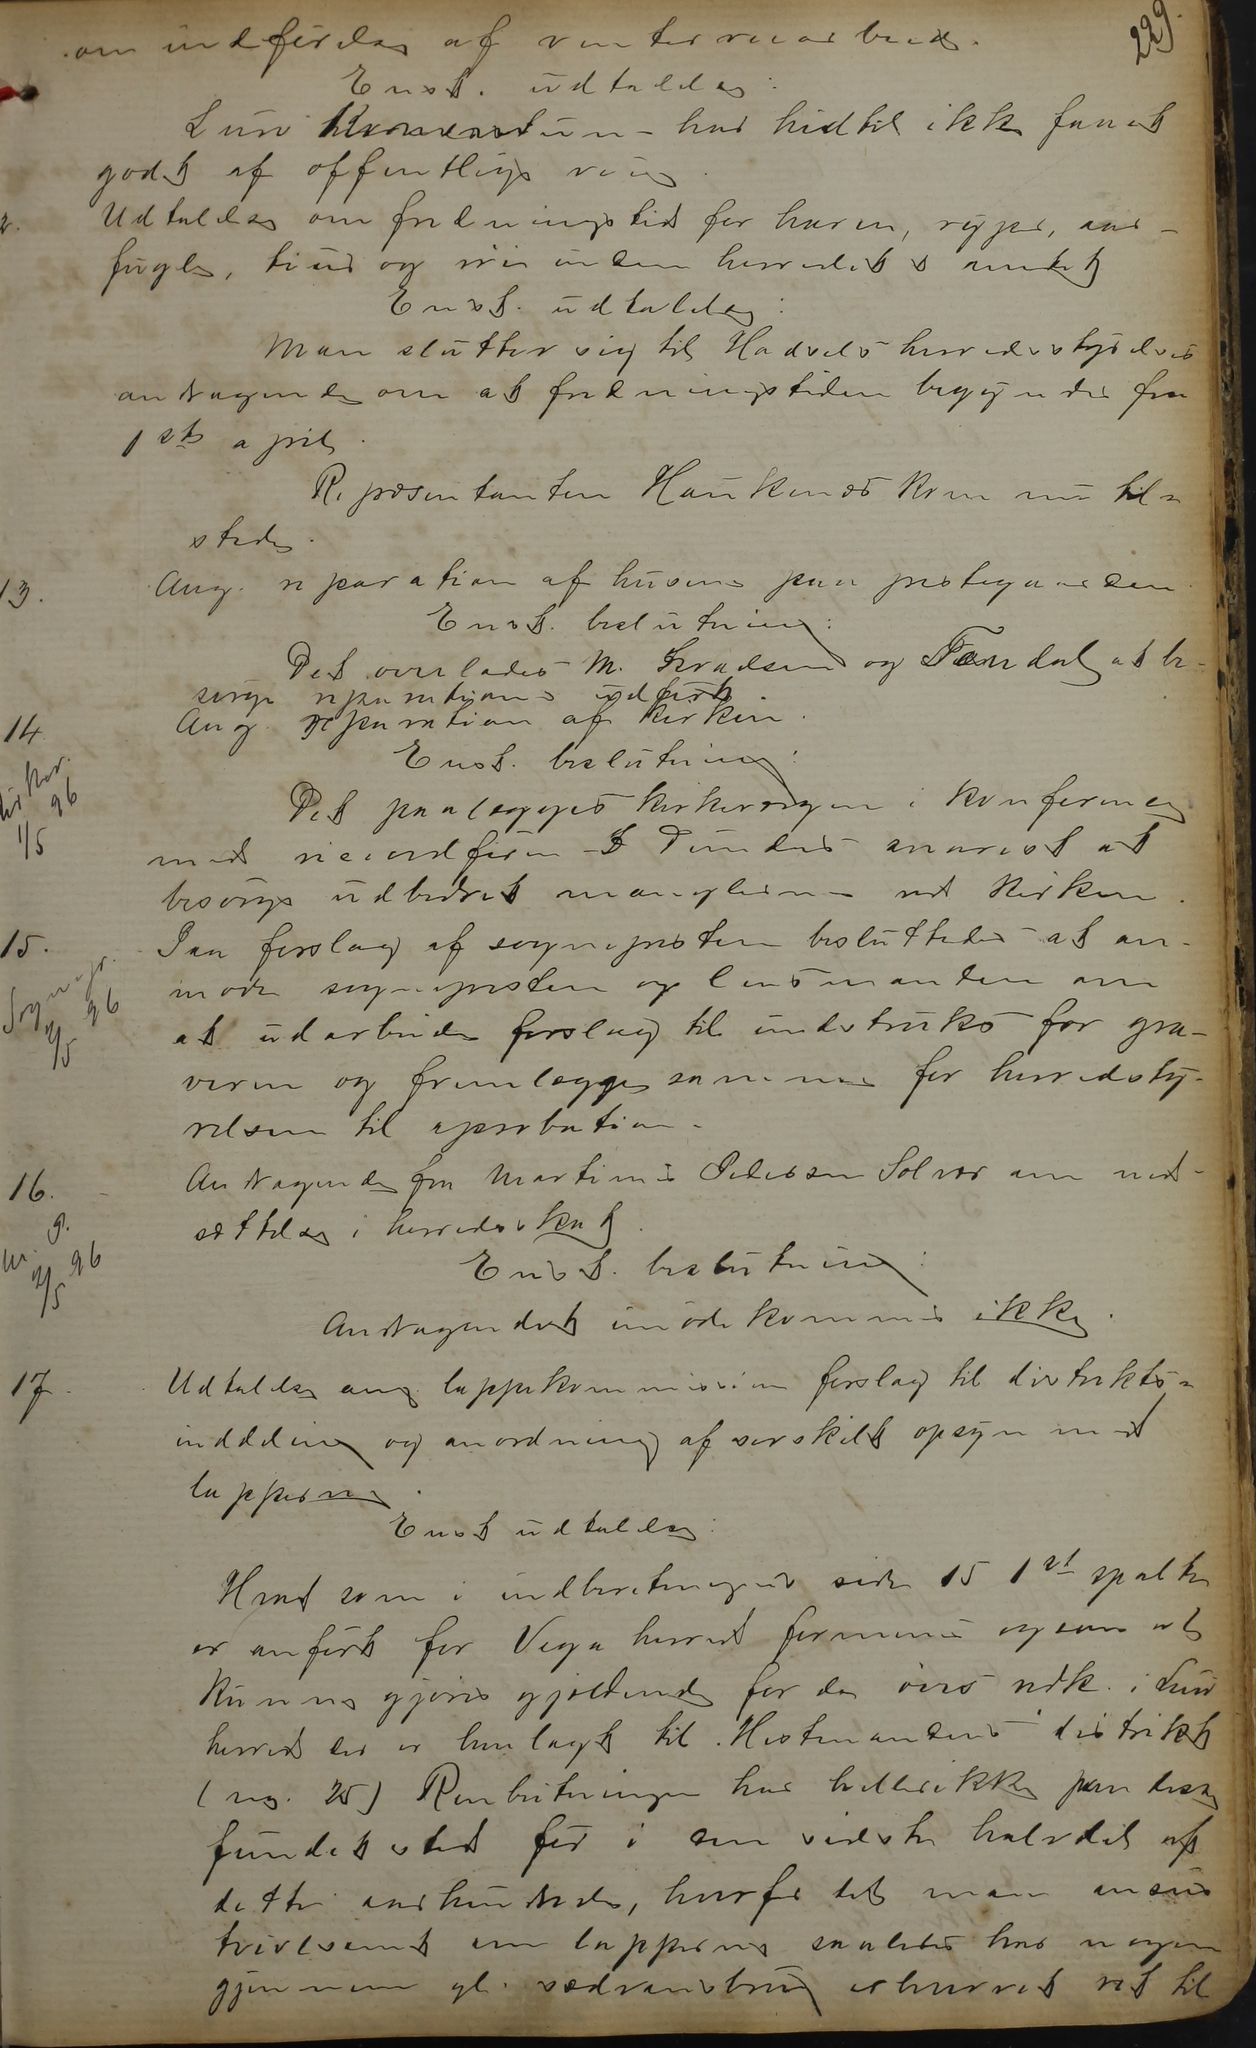 229.
om indførelse af vinterveiarbeide.
Enst. udtalelse:
Lurø kommune har hidtil ikke faaet
godt af offentlige veie.
2. Udtalelse om fredningstid for haren, ryper, aar-
fugle, tiur og røi inden herredet er mottat
Enst. udtalelse:
Man slutter sig til Hadsels herredsstyrelses
andragende om at fredningstiden begynder fra
1ste april.
Repræsentanten Haukenæs kom nu til-
stede.
13. Ang. reparation af husene paa prestegaarden
Enst. beslutning:
Det overlades M. Gradsen og Tondal at be-
sørge reparationen udført.
14. Ang. reparation af kirken.
Enst. beslutning:
Det paalægges kirkeværgen i konference
med viceordfører D Dundas snarest at
besørge udbedret manglerne ved kirken.
Kirkev.
1/5 96
15. Paa forslag af sognepresten besluttedes at an-
mode sognepresten og lensmanden om
at udarbeide forslag til indstruks for gra-
veren og fremlægge samme for herredsty-
relsen til aprobation.
Sognepr.
4/5 96
16. Andragende fra Martinus Pedersen Solvær om ned-
sættelse i herredsskat.
Enst. beslutning:
Andragendet imødekommes ikke.
m. g.
4/5 96
17. Udtalelse ang. lappekommissionens forslag til distrikts-
inddeling og anordning af særskilt opsyn med
lapperne.
Enst udtalelse:
Hvad som i indberetningens side 15 1ste spalte
er anført for Vega herred formenes ogsaa at
kunne gjøres gjældende for de øers vedk. i Lurø
herred der er henlagt til Hestmandens distrikt
(no. 25) Renbeitningen har heller ikke paa disse
fundet sted før i den sidste halvdel af
dette aarhundrede, hvorfor det man anser
tvivlsomt om lapperne saaledes har nogen
gjennem gl. sædvansbrug erhvervet ret til